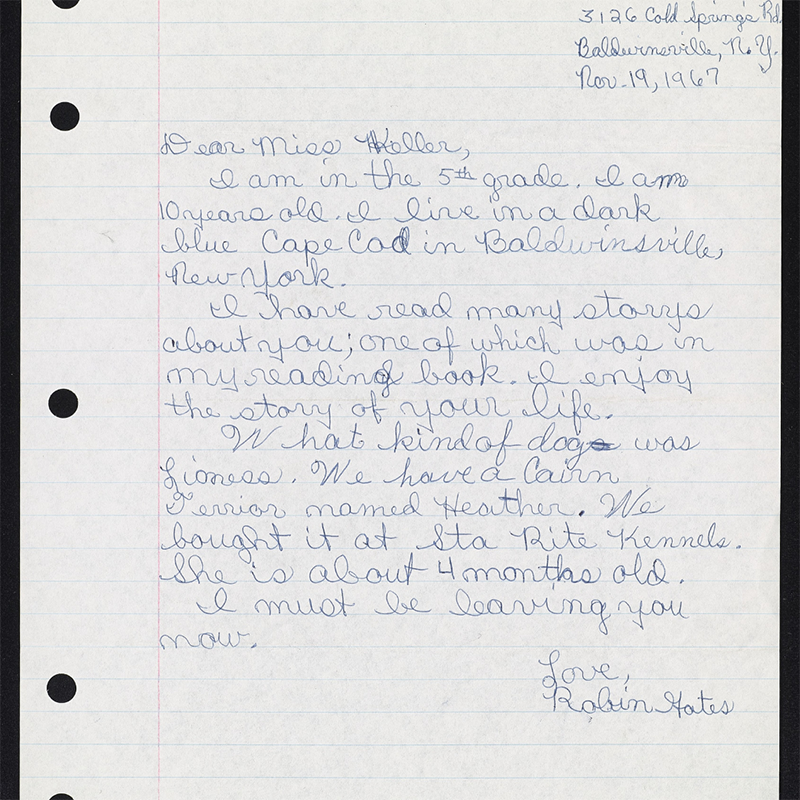 3126 Cold Springs Rd.
Baldwinsville, N.Y.
Nov. 19, 1967
Dear Miss Keller,
I am in the 5th grade. I am
10 years old. I live in a dark
blue Cape Cod in Baldwinsville,
New York.
I have read many storys
about you; one of which was in
my reading book. I enjoy
the story of your life.
What kind of dog was
Lioness. We have a Cairn
Terrior named Heather. We
bought it at Sta Rite Kennels.
She is about 4 months old.
I must be leaving you
now.
Love,
Robin Gates